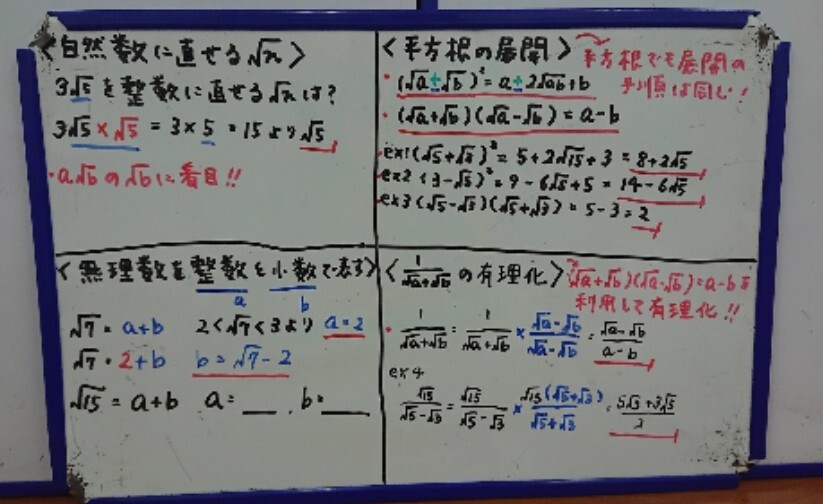 〈自然数に直せる√n〉
3√5を整数に直せる√nは?
3√5×√5 = 3×5 = 15より√5
・a√bの√bに着目!!
〈平方根の展開〉
平方根でも展開の
手順は同じ!
・(√a±√b)² = a±2√ab+b
・(√a+√b)(√a-√b) = a-b
ex1(√5+√3)² = 5+2√15+3 = 8+2√5
ex2(3-√5)² = 9-6√5+5 = 14-6√5
ex3(√5-√3)(√5+√3) = 5-3 = 2
〈無理数を整数を小数で表す〉
a b
√7 = a+b 2<√7<3より a=2
√7 = 2+b b=√7-2
√15 = a+b a=___, b=___
〈1/(√a+√b)の有理化〉
(√a+√b)(√a-√b)=a-bを
利用して有理化!!
・1/(√a+√b) = 1/(√a+√b) × (√a-√b)/(√a-√b) = (√a-√b)/(a-b)
ex4
√15/(√5-√3) = √15/(√5-√3) × √15(√5+√3)/(√5+√3) = (5√3+3√5)/2